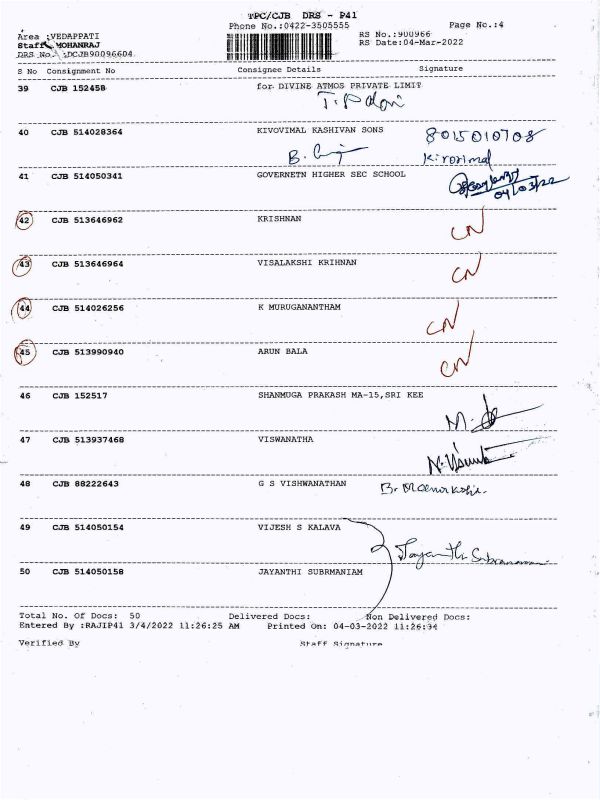 TPC/CJB DRS - P41
Phone No.:0422-3505555 Page No.:4
Area :VEDAPPATI RS No.:900966
Staff MOHANRAJ RS Date:04-Mar-2022
DRS No. :DCJB90096604
S No Consignment No Consignee Details Signature
39 CJB 152458 for DIVINE ATMOS PRIVATE LIMIT
40 CJB 514028364 KIVOVIMAL KASHIVAN SONS 8015010708
Kirorimal
41 CJB 514050341 GOVERNETN HIGHER SEC SCHOOL
04/03/22
42 CJB 513646962 KRISHNAN CN
43 CJB 513646964 VISALAKSHI KRIHNAN CN
44 CJB 514026256 K MURUGANANTHAM CN
45 CJB 513990940 ARUN BALA CN
46 CJB 152517 SHANMUGA PRAKASH MA-15,SRI KEE
47 CJB 513937468 VISWANATHA
48 CJB 88222643 G S VISHWANATHAN
49 CJB 514050154 VIJESH S KALAVA
Jayanthi Subramaniam
50 CJB 514050158 JAYANTHI SUBRMANIAM
Total No. Of Docs: 50 Delivered Docs: Non Delivered Docs:
Entered By :RAJIP41 3/4/2022 11:26:25 AM Printed On: 04-03-2022 11:26:34
Verified By Staff Signature